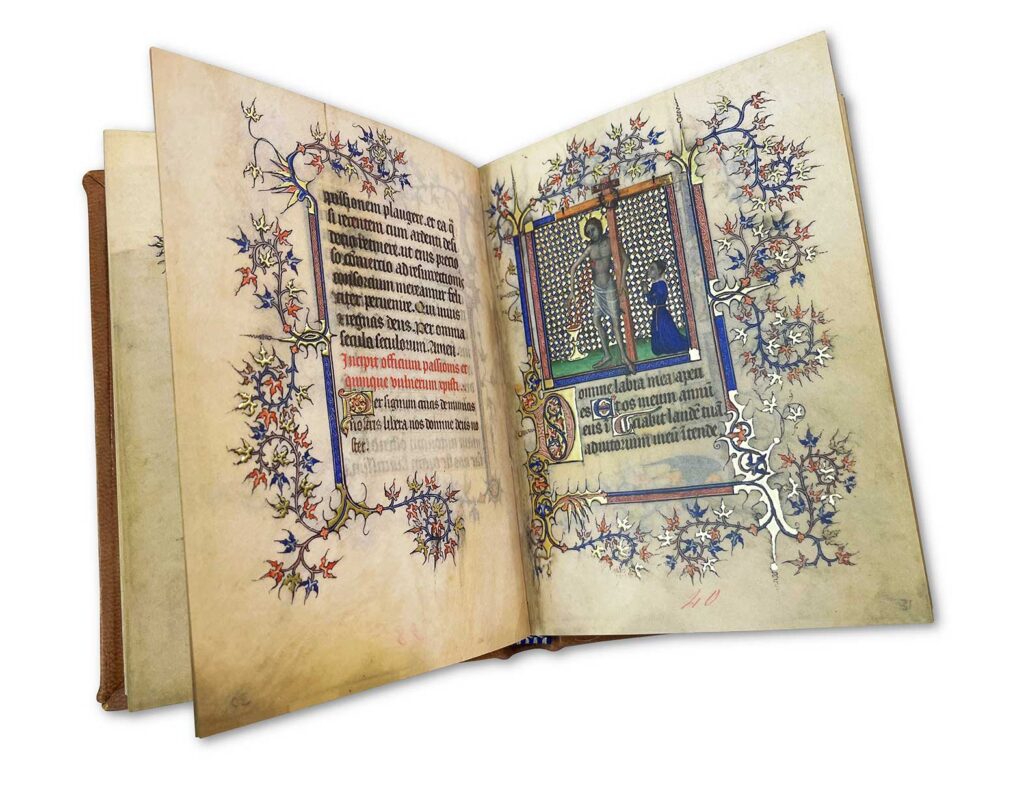 passionem plangere. et ea q̄
si recentem cum ardenti desi
derio retinere. ut eius precio
so comercio ad resurrectionis
consortium mereamur feli
citer peruenire. Qui uiuis
et regnas deus. Per omnia
secula seculorum. Amen.
Incipit officium passionis et
quinque uulnerum xpisti.
Per signum crucis de inimicis
nostris libera nos domine deus no
ster.
Domine labia mea aperi
es Et os meum annū
eus i Ciabit laudē tuā
adiutorium meū i tende
40
31